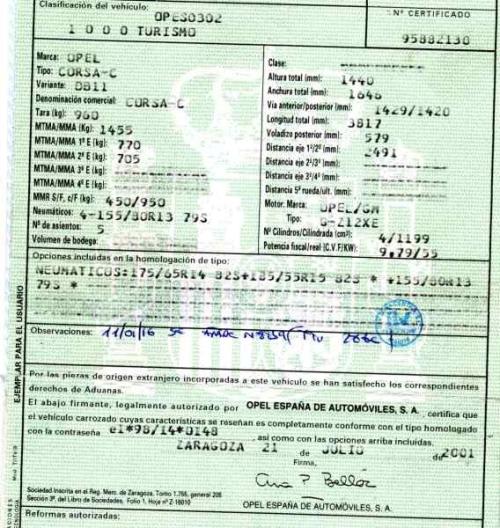 Clasificación del vehículo:
OPES0302
1 0 0 0 TURISMO
Nº CERTIFICADO
95882130
Marca: OPEL
Tipo: CORSA-C
Variante: DB11
Denominación comercial: CORSA-C
Tara (kg): 960
MTMA/MMA (Kg): 1455
MTMA/MMA 1º E (kg): 770
MTMA/MMA 2º E (kg): 705
MTMA/MMA 3º E (kg):
MTMA/MMA 4º E (kg):
MMR S/F, c/F (kg): 450/950
Neumáticos: 4-155/80R13 79S
Nº de asientos: 5
Volumen de bodega:
Clase:
Altura total (mm): 1440
Anchura total (mm): 1646
Vía anterior/posterior (mm): 1429/1420
Longitud total (mm): 3817
Voladizo posterior (mm): 579
Distancia eje 1º/2º (mm): 2491
Distancia eje 2º/3º (mm):
Distancia eje 3º/4º (mm):
Distancia 5ª rueda/últ. (mm):
Motor. Marca: OPEL/GM
Tipo: G-Z12XE
Nº Cilindros/Cilindrada (cm³): 4/1199
Potencia fiscal/real (C.V.F/KW): 9.79/55
Opciones incluidas en la homologación de tipo:
NEUMATICOS: 175/65R14 82S+185/55R15 82S * +155/80R13
79S *
Observaciones: 11/01/16
Por las piezas de origen extranjero incorporadas a este vehículo se han satisfecho los correspondientes
derechos de Aduanas.
El abajo firmante, legalmente autorizado por OPEL ESPAÑA DE AUTOMÓVILES, S. A., certifica que
el vehículo carrozado cuyas características se reseñan es completamente conforme con el tipo homologado
con la contraseña e1*98/14*0148, así como con las opciones arriba incluidas.
ZARAGOZA 21 de JULIO de 2001
Firma,
Sociedad Inscrita en el Reg. Merc. de Zaragoza, Tomo 1.766, general 208
Sección 3ª. del Libro de Sociedades, Folio 1, Hoja nº Z-16010
OPEL ESPAÑA DE AUTOMÓVILES, S. A.
Reformas autorizadas:
EJEMPLAR PARA EL USUARIO